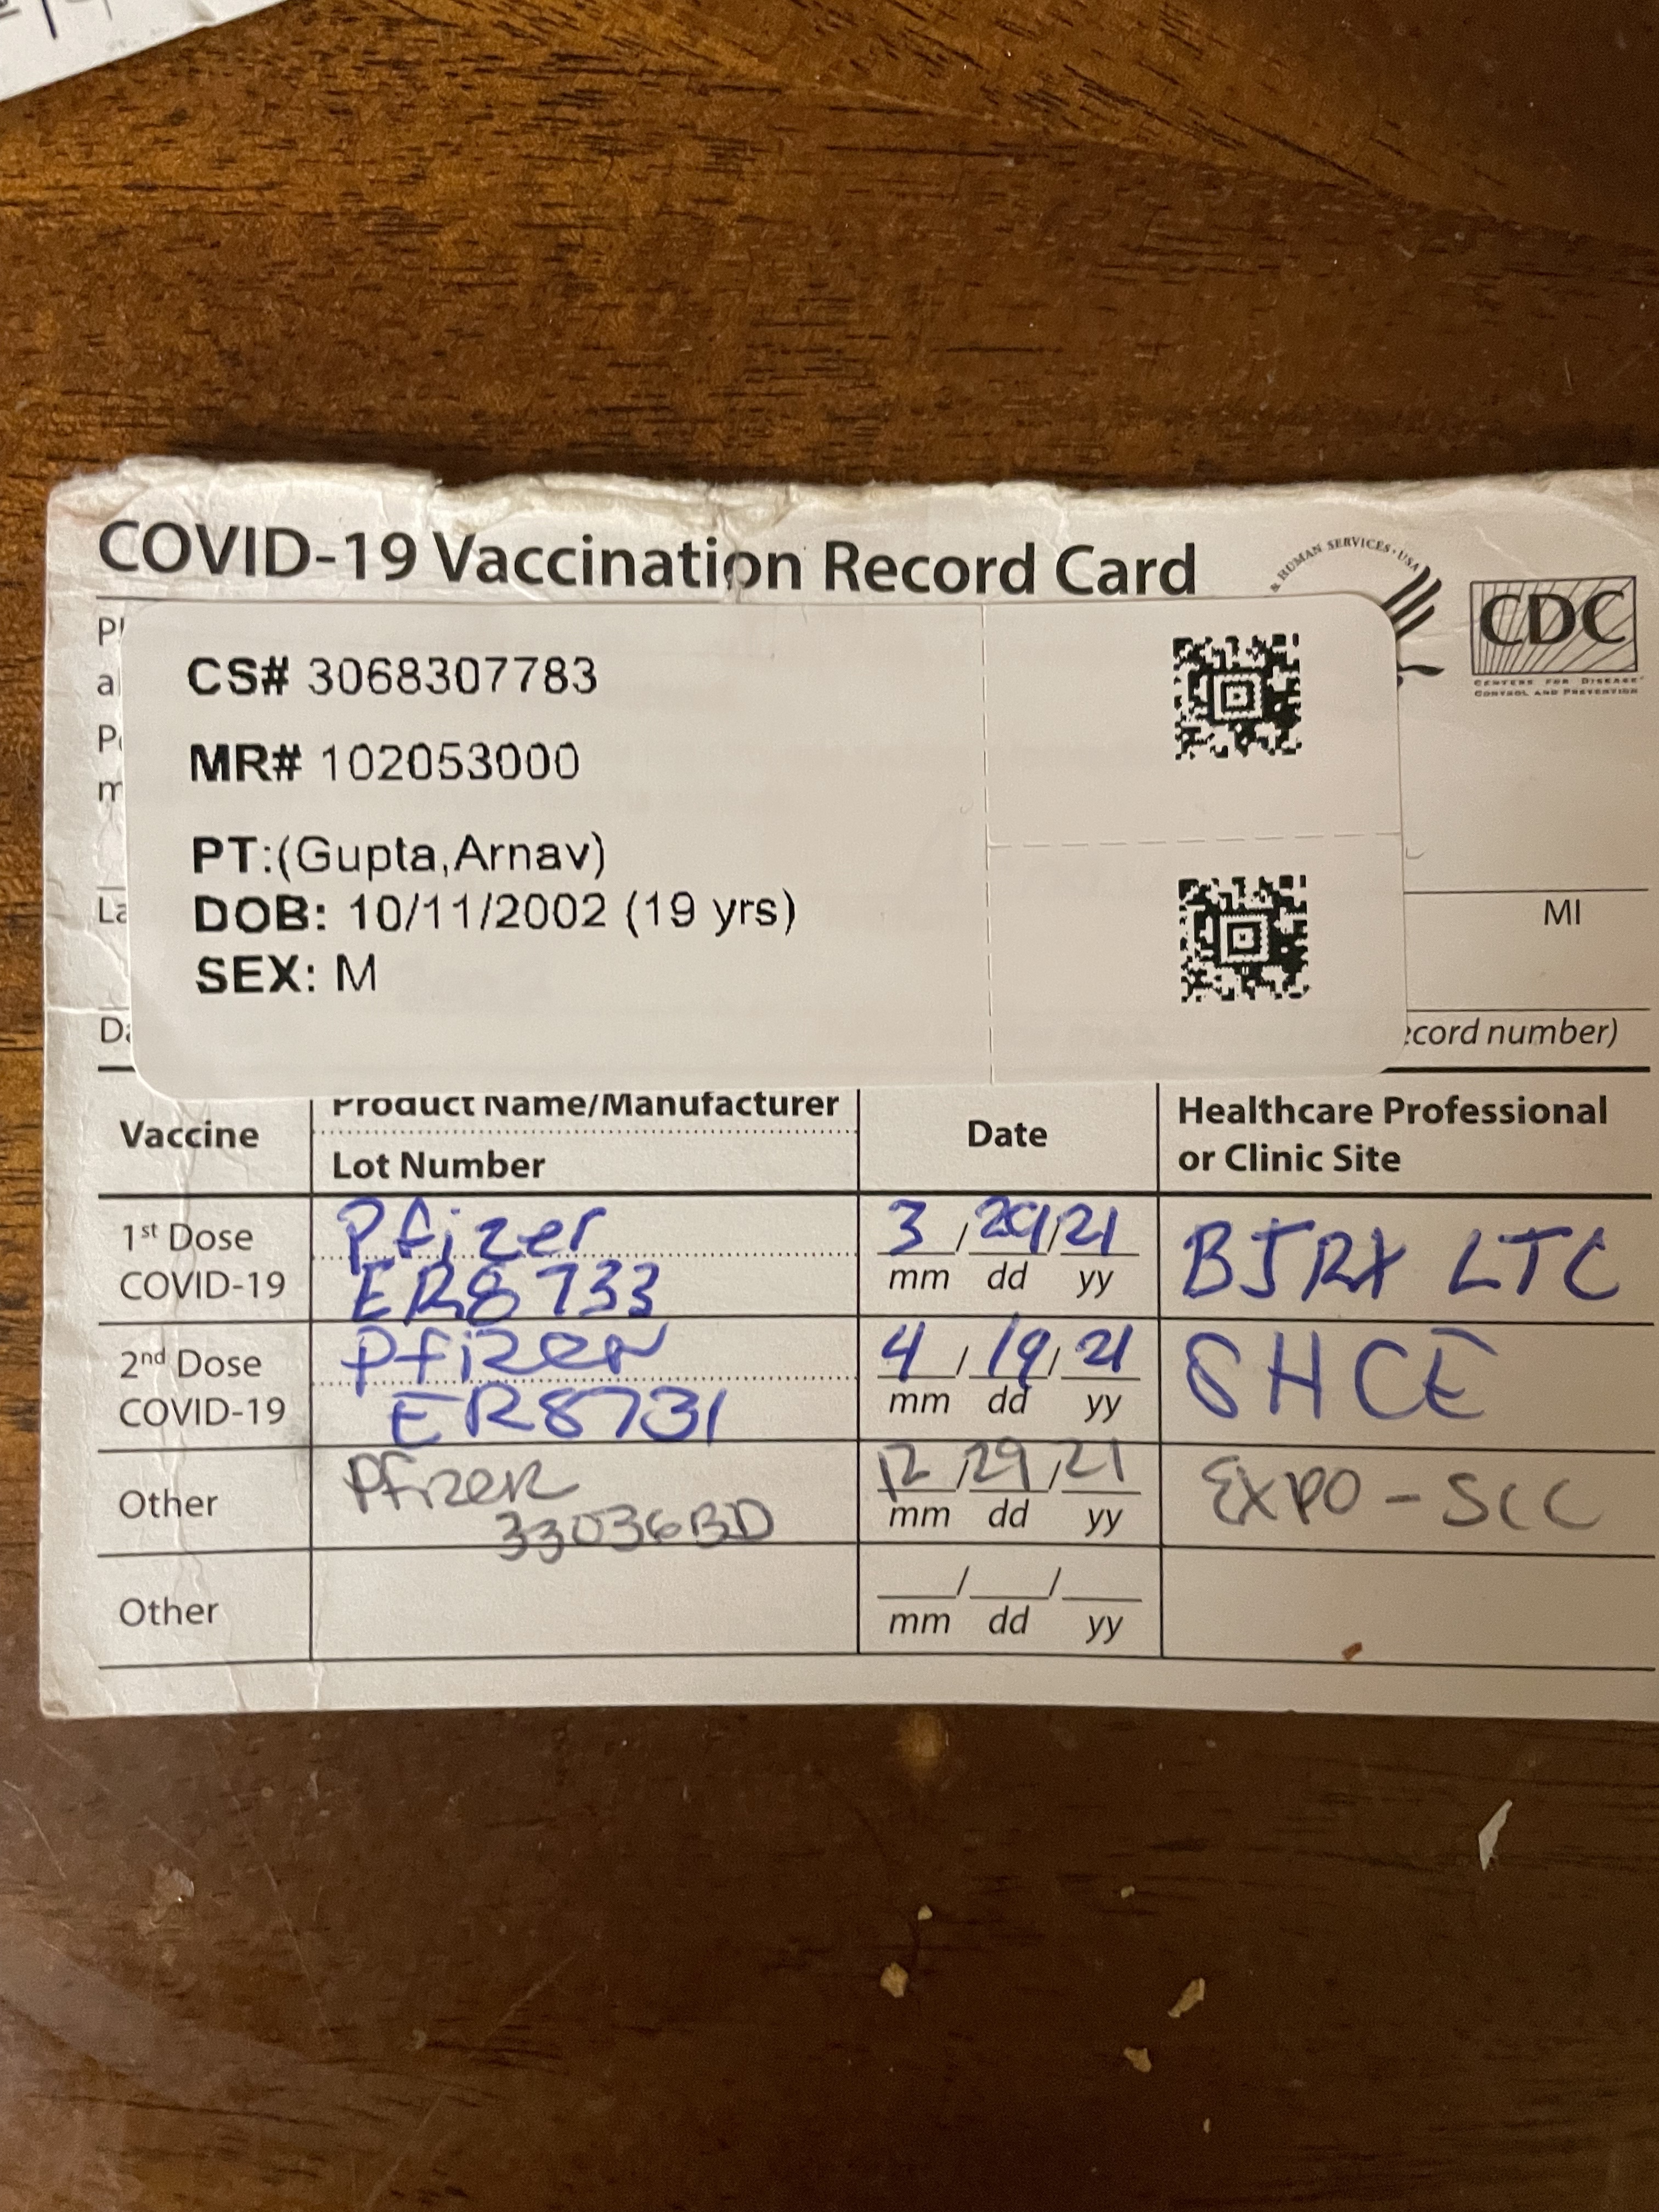 COVID-19 Vaccination Record Card
& HUMAN SERVICES · USA
CDC
CENTERS FOR DISEASE
CONTROL AND PREVENTION
CS# 3068307783
MR# 102053000
PT:(Gupta,Arnav)
DOB: 10/11/2002 (19 yrs)
SEX: M
MI
record number)
Vaccine
Product Name/Manufacturer
Lot Number
Date
Healthcare Professional
or Clinic Site
1st Dose
COVID-19
Pfizer
ER8733
3/29/21
mm dd yy
BJRX LTC
2nd Dose
COVID-19
Pfizer
ER8731
4/19/21
mm dd yy
SHCE
Other
Pfizer
33036BD
12/29/21
mm dd yy
EXPO - SCC
Other
__/__/__
mm dd yy